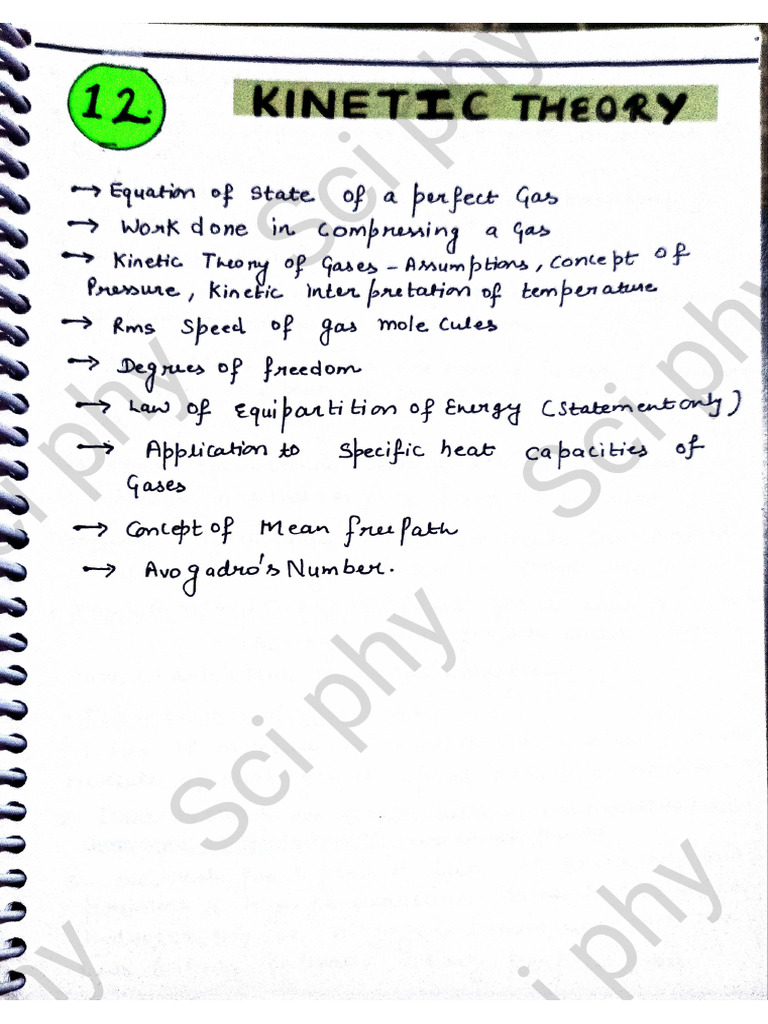 12.
KINETIC THEORY
→ Equation of State of a perfect Gas
→ Work done in Compressing a Gas
→ Kinetic Theory of Gases - Assumptions, Concept of
Pressure, Kinetic interpretation of temperature
→ Rms Speed of gas molecules
→ Degrees of freedom
→ Law of Equipartition of Energy (Statement only)
→ Application to Specific heat capacities of
Gases
→ Concept of Mean free Path
→ Avogadro's Number.
Sci phy
Sci phy
Sci phy
Sci phy
Sci phy
phy